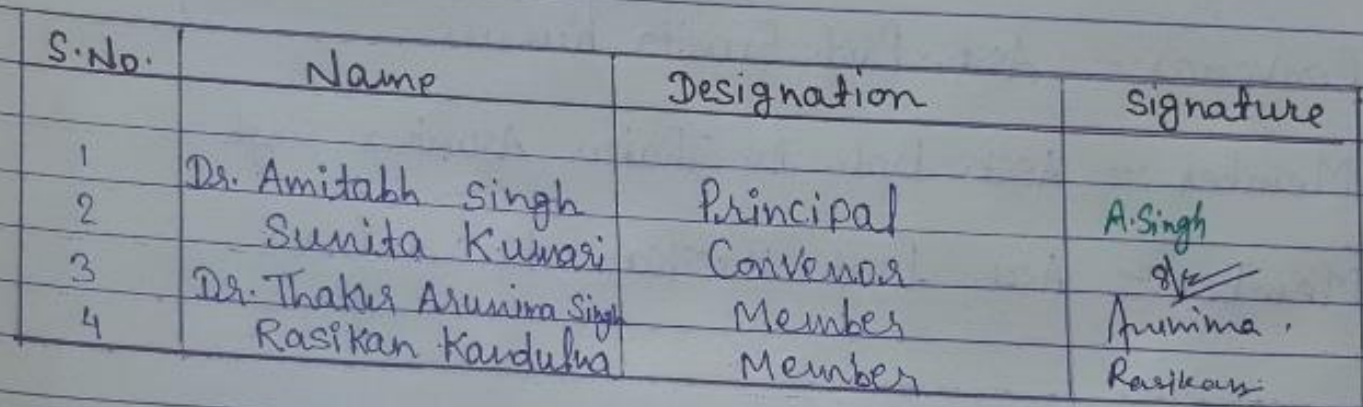 S.No. Name Designation Signature
1 Dr. Amitabh Singh Principal A.Singh
2 Sunita Kumari Convenor
3 Dr. Thakur Arunima Singh Member Arunima.
4 Rasikan Kandulna Member Rasikan